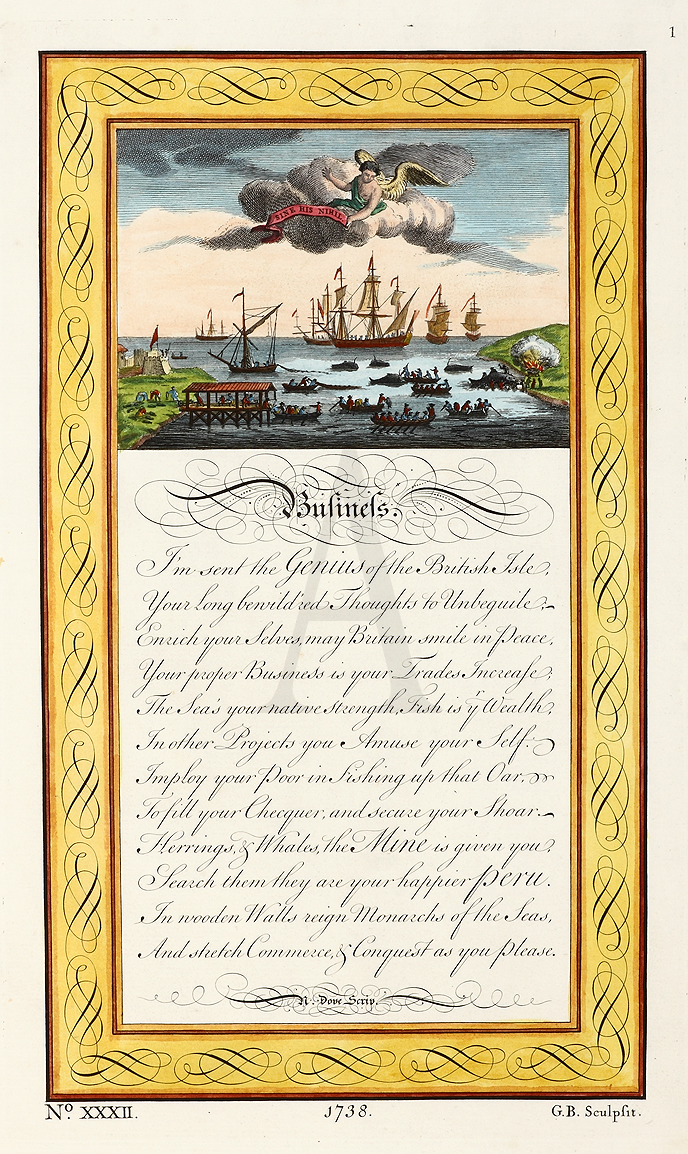 1
SINE HIS NIHIL
Buſineſs.
I'm sent the Genius of the British Isle,
Your Long bewild'red Thoughts to Unbeguile:
Enrich your Selves, may Britain smile in Peace,
Your proper Business is your Trades Increase;
The Sea's your native Strength, Fish is yr Wealth,
In other Projects you Amuse your Self:
Imploy your Poor in Fishing up that Oar,
To fill your Checquer, and secure your Shoar.
Herrings, & Whales, the Mine is given you,
Search them they are your happier Peru.
In wooden Walls reign Monarchs of the Seas,
And stretch Commerce, & Conquest as you Please.
N. Dove Scrip.
No. XXXII. 1738. G.B. Sculpſit.